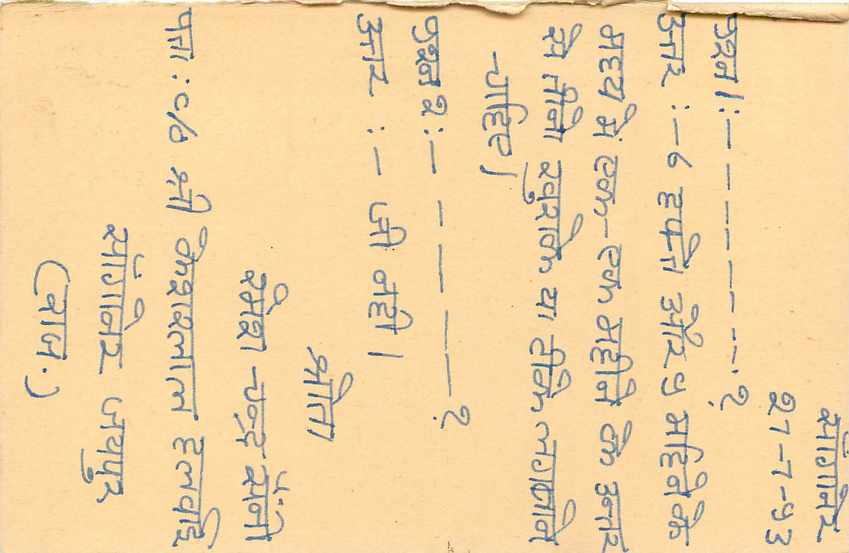 साँगानेर
27-7-93
प्रश्न 1:— — — — — — — ?
उत्तर :— 6 हफ्ते और 9 महिने के
मध्य में एक-एक महीने के अन्तर
से तीनो खुराके या टीके लगवाने
चाहिए।
प्रश्न 2:— — — — — ?
उत्तर :— जी नही।
श्रोता
रमेश चन्द सैनी
पता : C/o श्री कैलाशलाल हलवाई
साँगानेर जयपुर
(राज.)